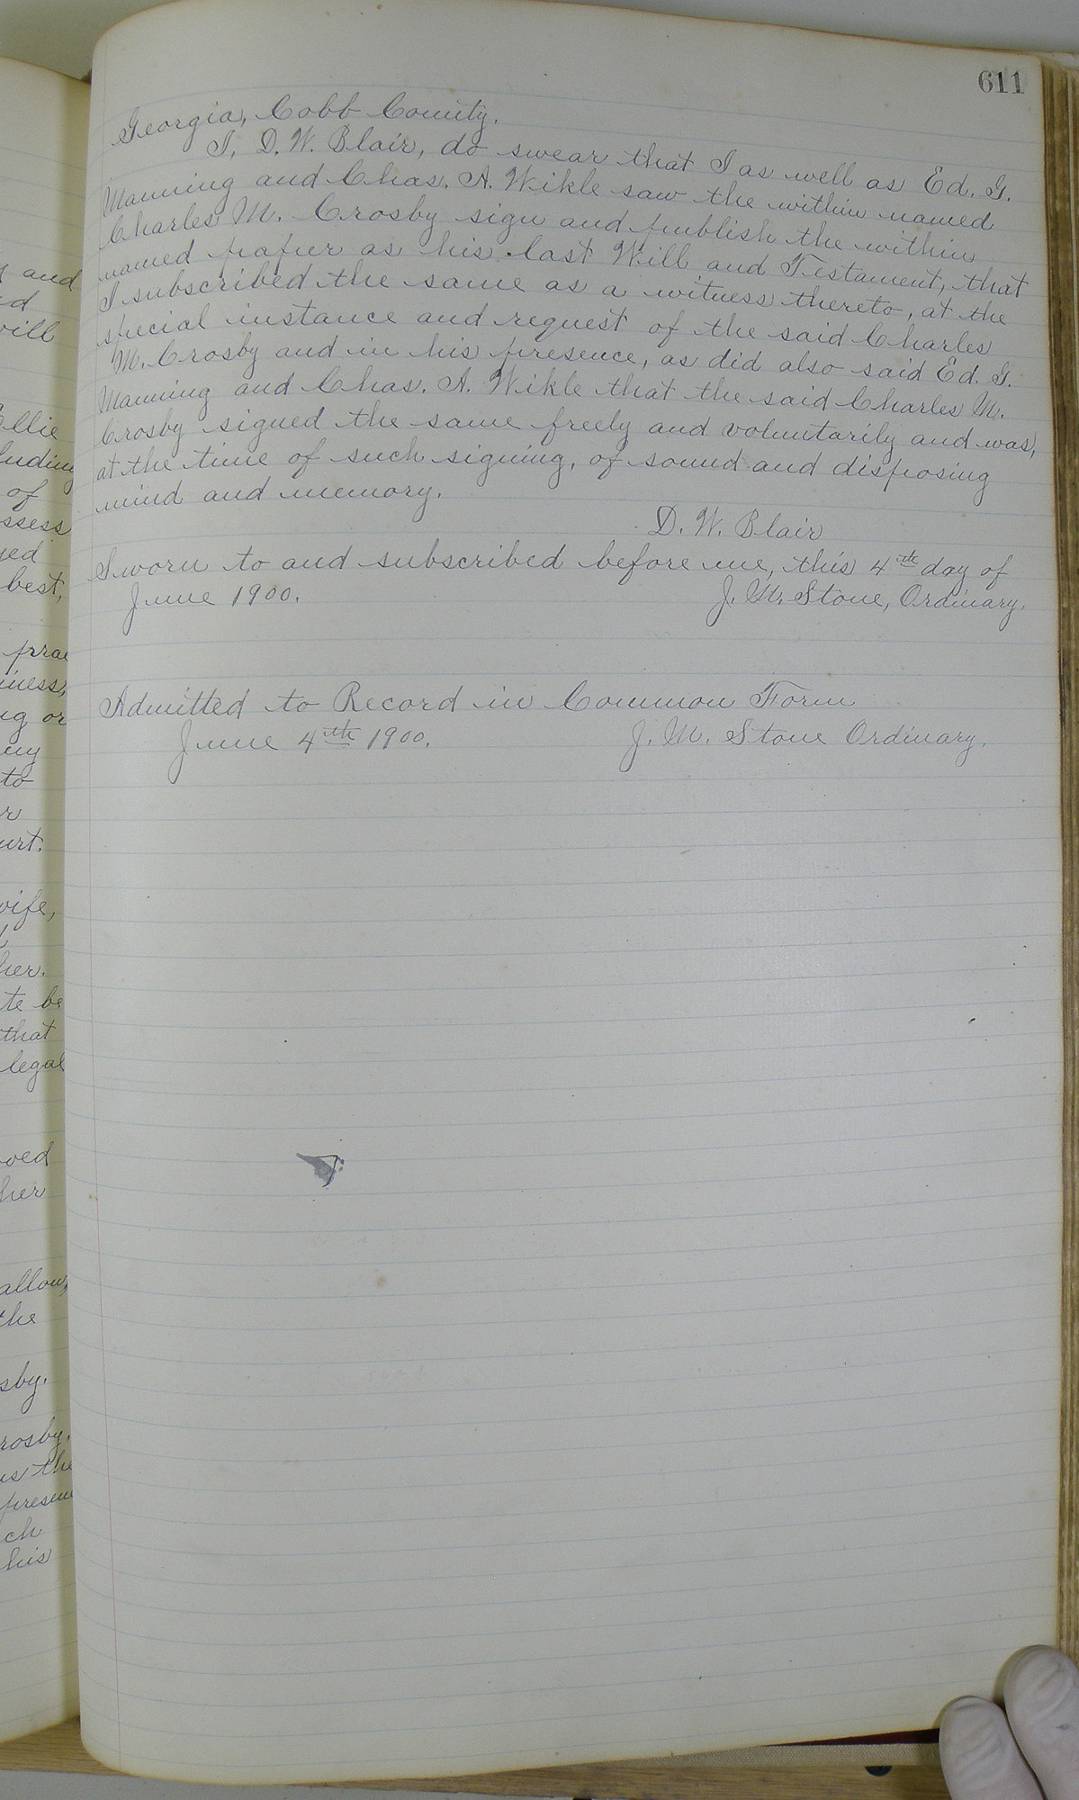 611
Georgia, Cobb County.
I, D. W. Blair, do swear that I as well as Ed. G.
Manning and Chas. A. Wikle saw the within named
Charles M. Crosby sign and publish the within
named paper as his last Will and Testament, that
I subscribed the same as a witness thereto, at the
special instance and request of the said Charles
M. Crosby and in his presence, as did also said Ed. G.
Manning and Chas. A. Wikle that the said Charles M.
Crosby signed the same freely and voluntarily and was,
at the time of such signing, of sound and disposing
mind and memory.
D. W. Blair
Sworn to and subscribed before me, this 4th day of
June 1900. J. M. Stone, Ordinary.
Admitted to Record in Common Form
June 4th 1900. J. M. Stone Ordinary.
and
will
of
best,
or
to
wife,
her.
be
that
legal
her
allow,
the
the
his